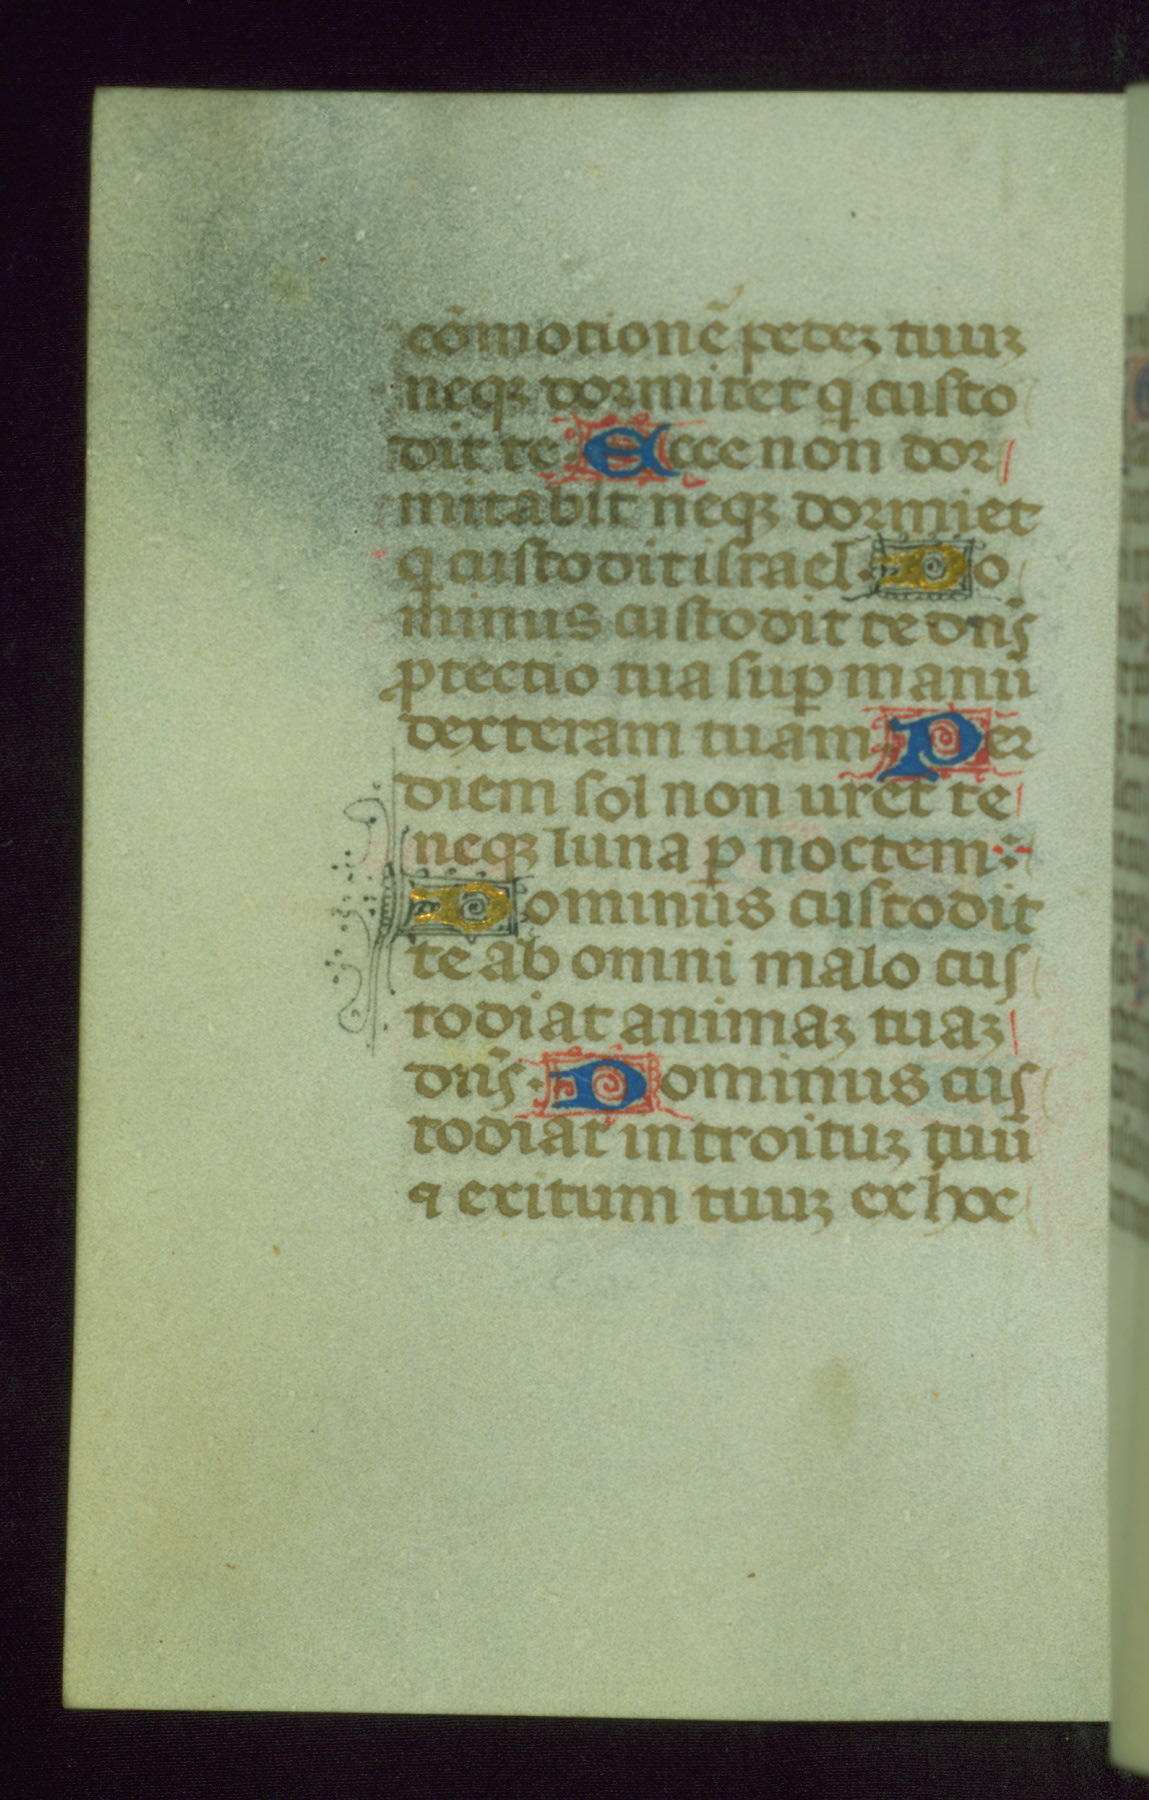 cōmotionē pedeꝫ tuuꝫ
neqꝫ dormitet q̇ custo
dit te Ecce non dor
mitabit neqꝫ dormiet
q̇ custodit israel. Do
minus custodit te dn̄s
ꝓtectio tua suꝑ manū
dexteram tuam. Per
diem sol non uret te
neqꝫ luna ꝑ noctem:
Dominus custodit
te ab omni malo cus
todiat animaꝫ tuaꝫ
dn̄s. Dominus cus
todiat introituꝫ tuū
⁊ exitum tuuꝫ ex hoc